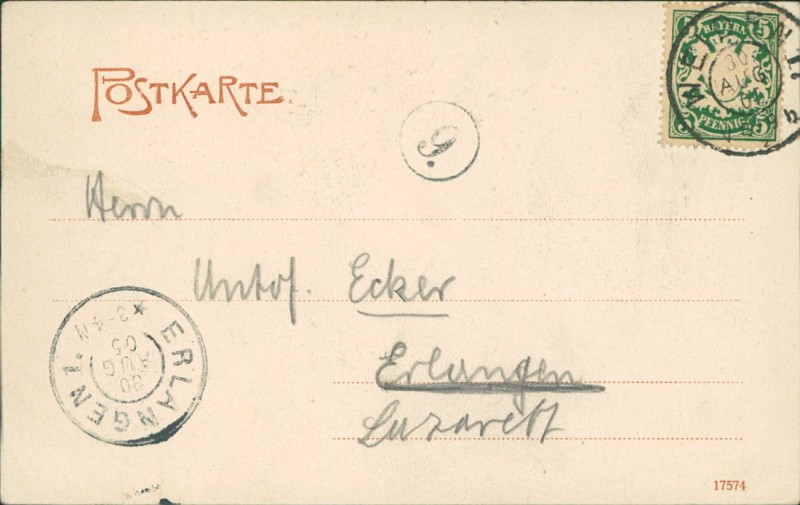 POSTKARTE.
BAYERN
5 5
30.
AUG
05
PFENNIG
5 5
9.
Herrn
Untof. Ecker
Erlangen
Lazarett
ERLANGEN I.
* 3-4 N
30
AUG
05
17574